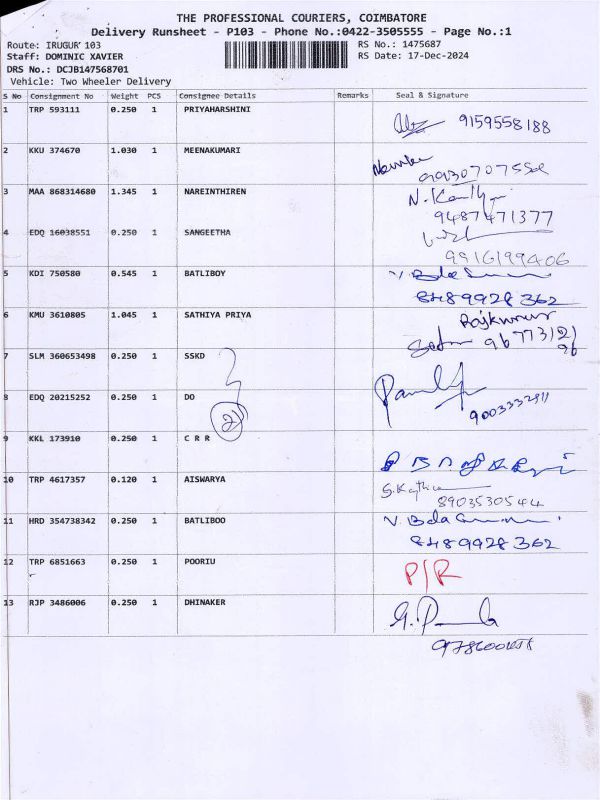 THE PROFESSIONAL COURIERS, COIMBATORE
Delivery Runsheet - P103 - Phone No.:0422-3505555 - Page No.:1
Route: IRUGUR 103 RS No.: 1475687
Staff: DOMINIC XAVIER RS Date: 17-Dec-2024
DRS No.: DCJB147568701
Vehicle: Two Wheeler Delivery
S No Consignment No Weight PCS Consignee Details Remarks Seal & Signature
1 TRP 593111 0.250 1 PRIYAHARSHINI
9159558188
2 KKU 374670 1.030 1 MEENAKUMARI
3 MAA 868314680 1.345 1 NAREINTHIREN
9487471377
4 EDQ 16038551 0.250 1 SANGEETHA
9916199406
5 KDI 750580 0.545 1 BATLIBOY
8489928362
6 KMU 3610805 1.045 1 SATHIYA PRIYA
Rajkumar
7 SLM 360653498 0.250 1 SSKD
8 EDQ 20215252 0.250 1 DO
2)
9 KKL 173910 0.250 1 C R R
10 TRP 4617357 0.120 1 AISWARYA
8903530544
11 HRD 354738342 0.250 1 BATLIBOO
8489928362
12 TRP 6851663 0.250 1 POORIU
P/R
13 RJP 3486006 0.250 1 DHINAKER